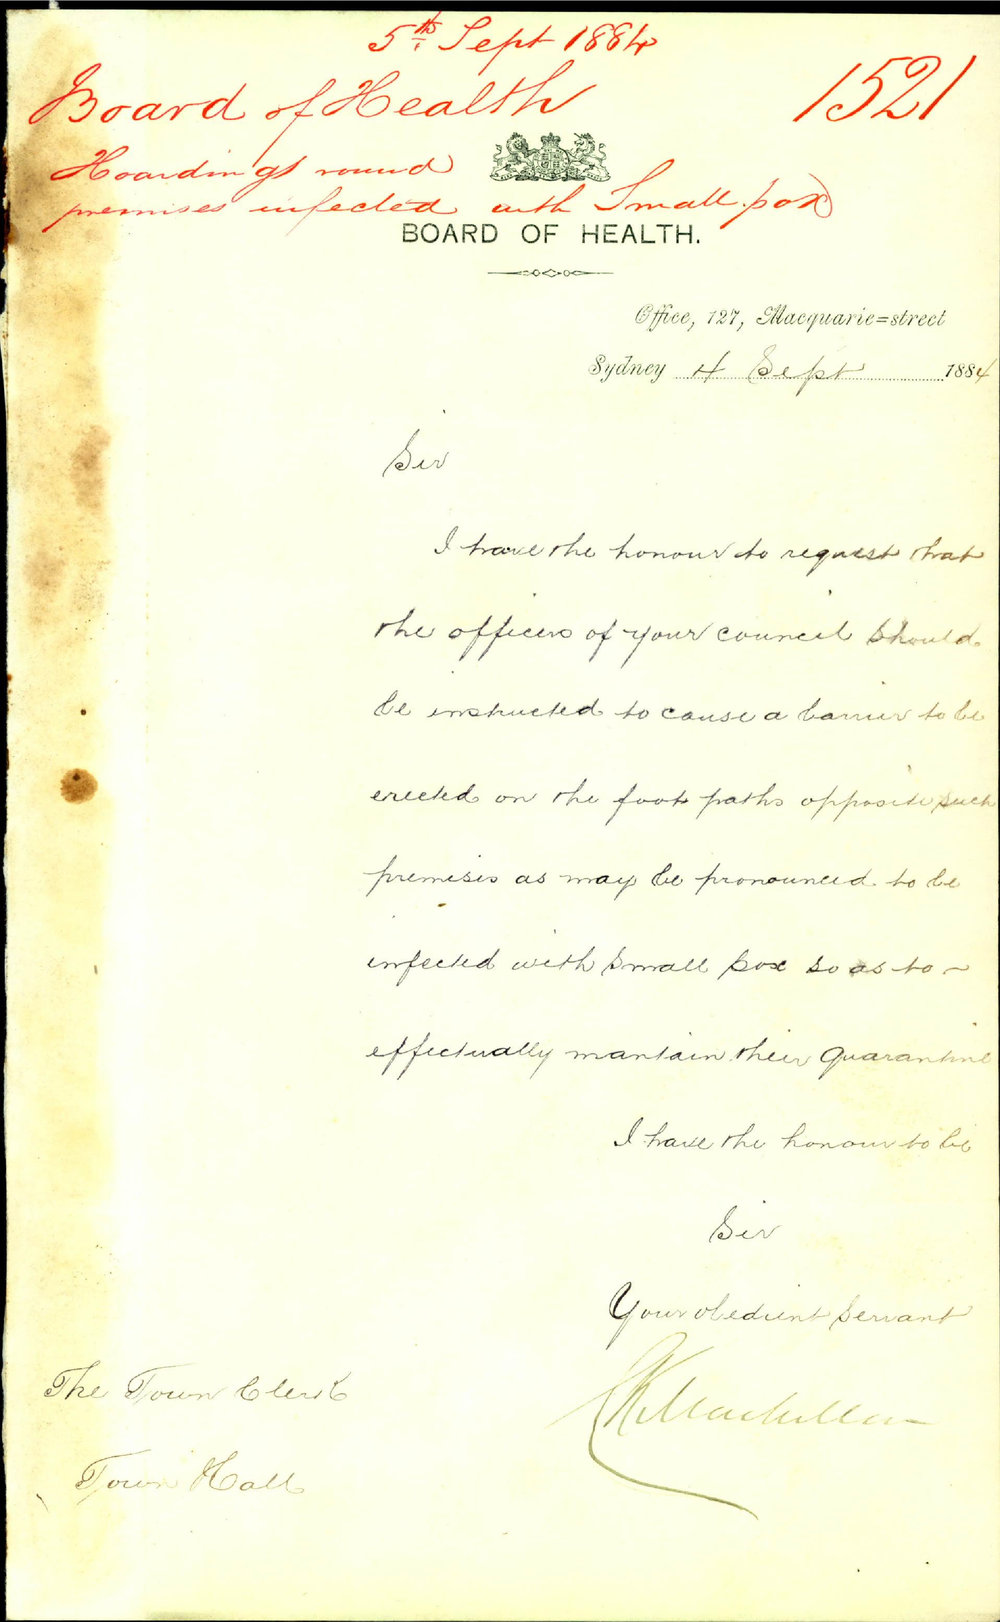 5th Sept 1884
Board of Health
1521
Hoardings round
premises infected with Small pox
BOARD OF HEALTH.
Office, 127, Macquarie=street
Sydney 4 Sept 1884
Sir
I have the honour to request that
the officers of your council should
be instructed to cause a barrier to be
erected on the foot paths opposite such
premises as may be pronounced to be
infected with Small pox so as to
effectually mantain their Quarantine
I have the honour to be
Sir
Your obedient Servant
The Town Clerk
Town Hall